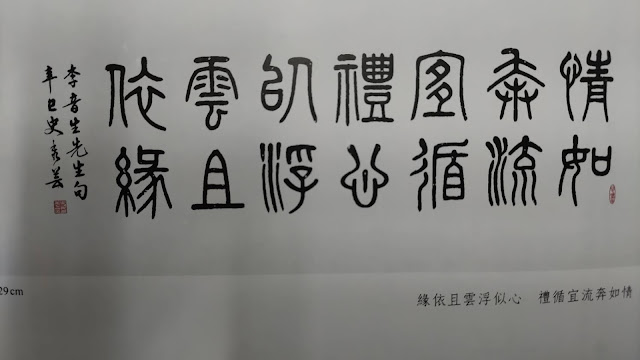 情如
奔流
宜循
禮心
似浮
雲且
依緣
李音生先生句
辛巳史
29 cm
情如奔流宜循禮　心似浮雲且依緣